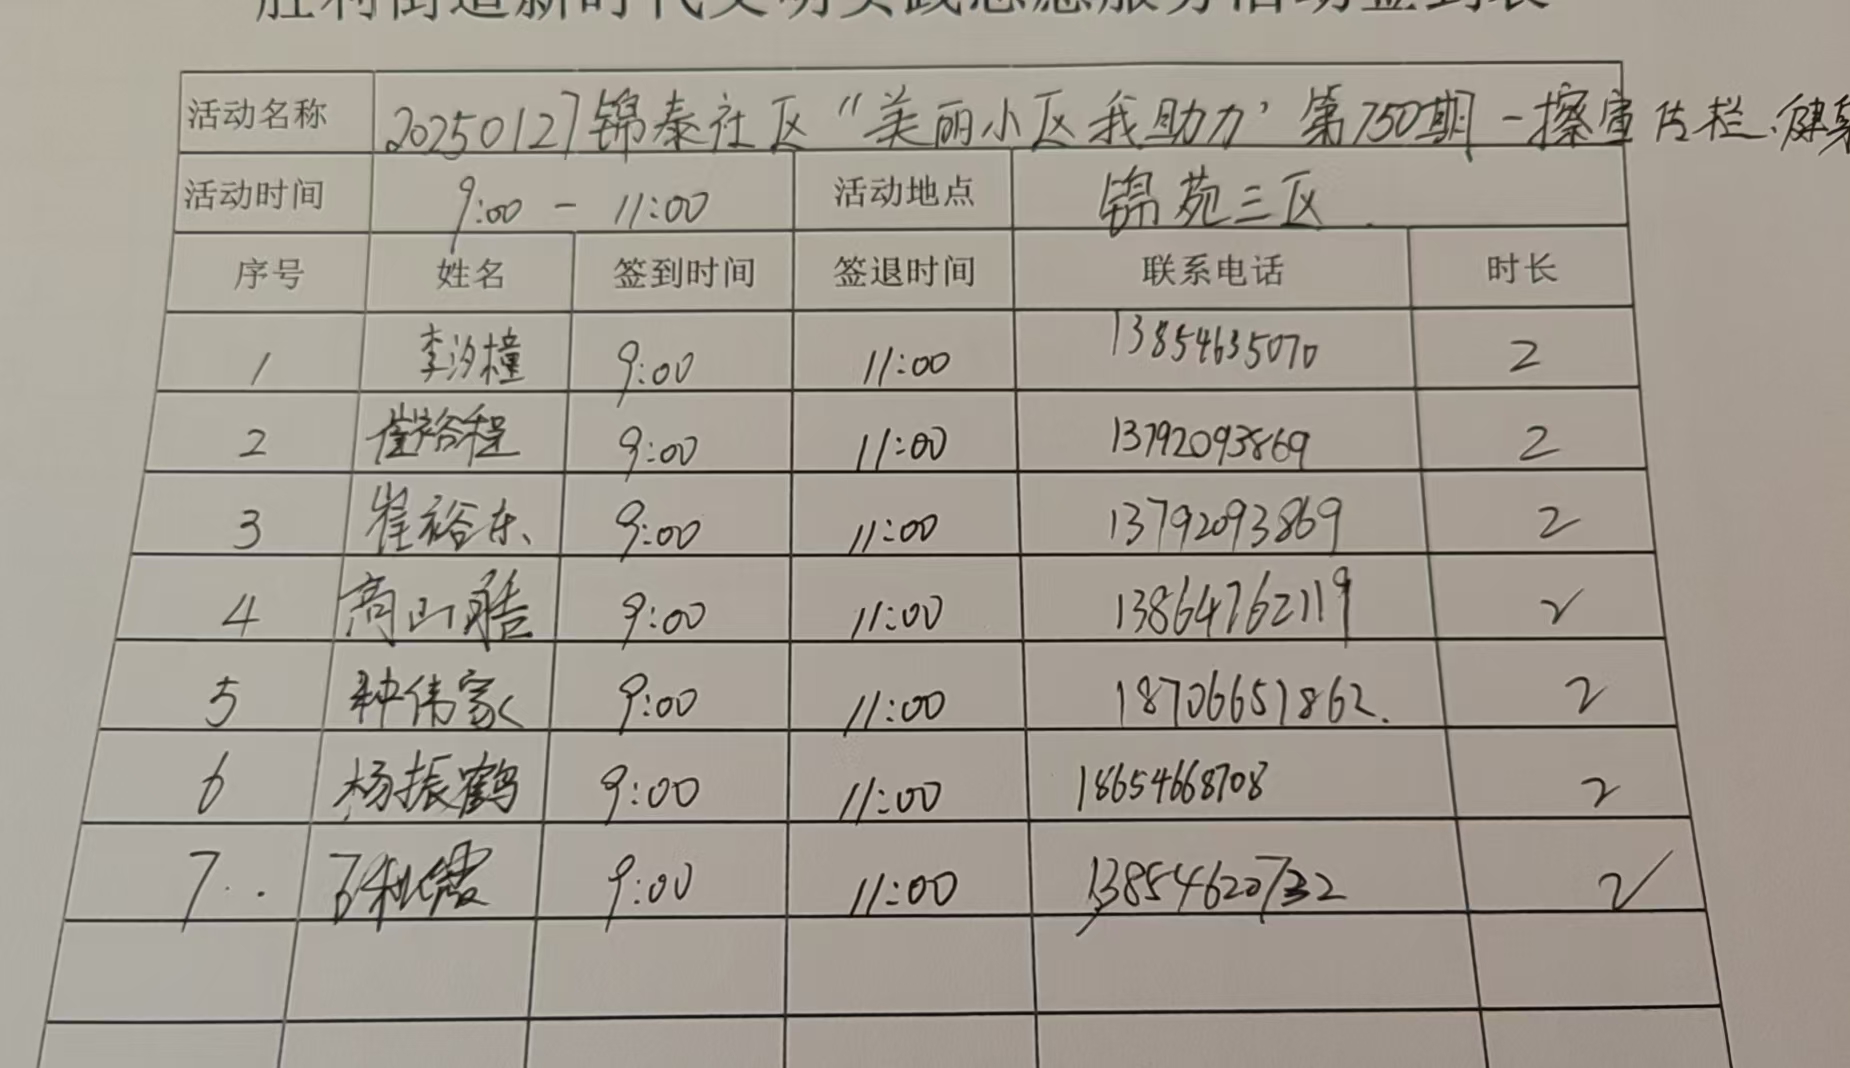 胜利街道新时代文明实践志愿服务活动签到表
活动名称 20250127锦泰社区“美丽小区我助力”第750期-擦宣传栏、健身
活动时间 9:00 - 11:00 活动地点 锦苑三区
序号 姓名 签到时间 签退时间 联系电话 时长
1 李汐橦 9:00 11:00 13854635070 2
2 崔裕程 9:00 11:00 13792093869 2
3 崔裕东 9:00 11:00 13792093869 2
4 商山皓 9:00 11:00 13864762119 2
5 种伟家 9:00 11:00 18706651862. 2
6 杨振鹤 9:00 11:00 18654668708 2
7 9:00 11:00 13854620732 2